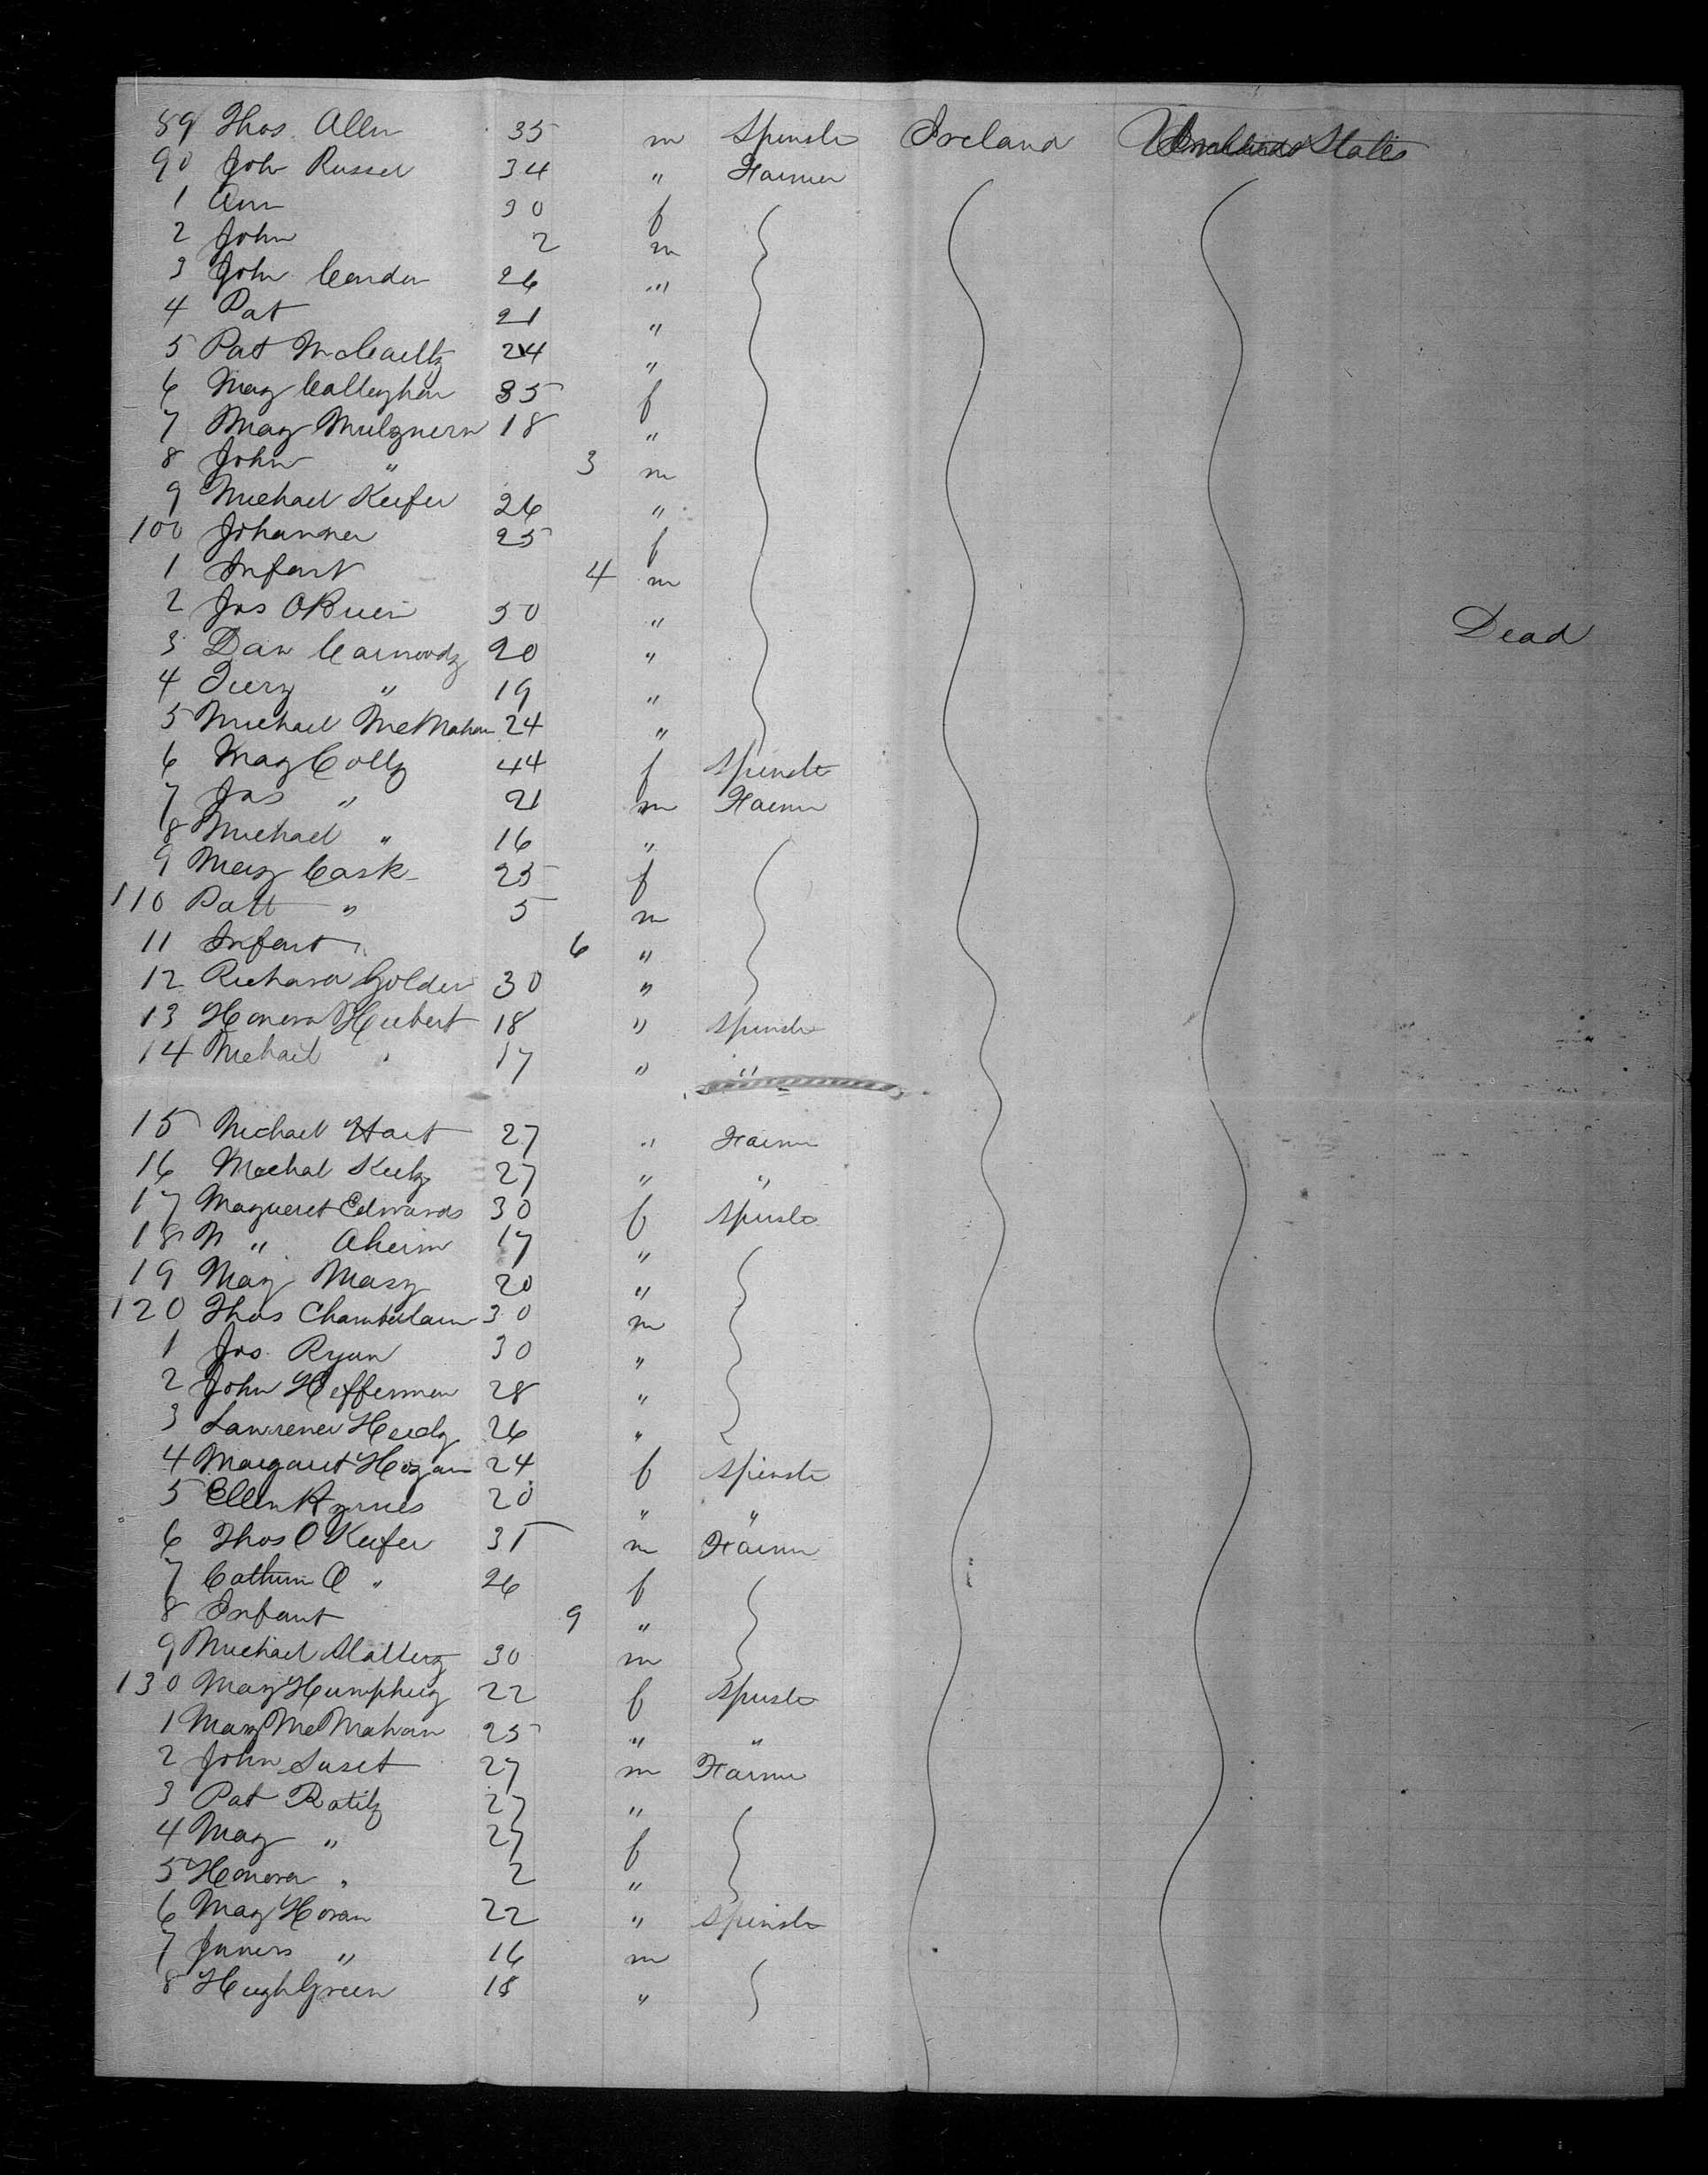 89 Thos. Allen 35 m Spinste Ireland United States
90 John Russel 34 " Farmer
1 Ann 30 f
2 John 2 m
3 John Condon 26 "
4 Pat 21 "
5 Pat 24 "
6 Mary Calleghan 35 f
7 Mary 18 "
8 John " 3 m
9 Michael Keefer 26 "
100 Johanna 25 f
1 Infant 4 m
2 Jas OBrien 30 " Dead
3 Dan 20 "
4 " 19 "
5 Michael McMahon 24 "
6 Mary Colly 44 f Spinste
7 Jas " 21 m Farmer
8 Michael " 16 "
9 Mary Cask 25 f
110 Patt " 5 m
11 Infant " 6 "
12 Richard Golden 30 "
13 Honora Hubert 18 " Spinste
14 Michail " 17 " "
15 Michael Hart 27 " Farmer
16 Mechal 27 " "
17 Magueret Edwards 30 f Spinste
18 M " Ahern 17 "
19 Mary Masy 20 "
120 Thos Chamberlain 30 m
1 Jas. Ryan 30 "
2 John Heffernan 28 "
3 Lawrence 26 "
4 Margaret Hogan 24 f Spinste
5 Ellen Hynes 20 " "
6 Thos O Keefer 35 m Farmer
7 Cathrin O " 26 f
8 Infant 9 "
9 Michael Slattery 30 m
130 Mary Humphrey 22 f Spinste
1 Mary McMahon 25 " "
2 John 27 m Farmer
3 Pat 27 "
4 Mary " 27 f
5 Honora " 2 "
6 Mary Horan 22 " Spinste
7 " 16 m
8 Hugh Green 18 "